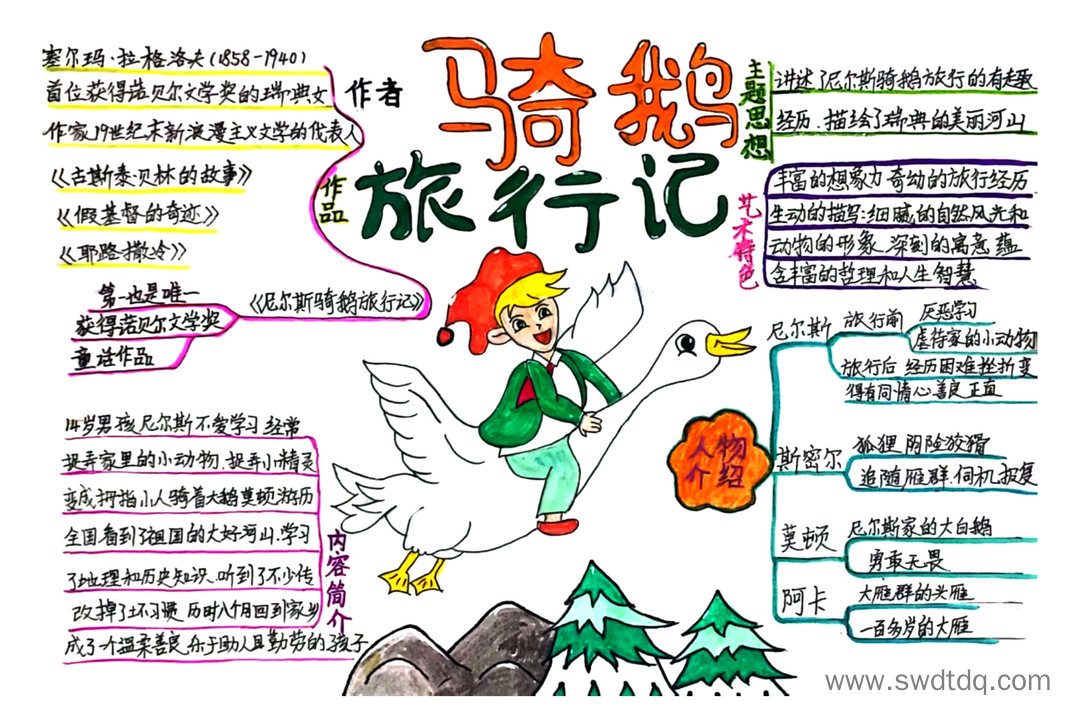 骑鹅
旅行记
作者
塞尔玛·拉格洛夫(1858-1940)
首位获得诺贝尔文学奖的瑞典女
作家,19世纪末新浪漫主义文学的代表人
作品
《古斯泰·贝林的故事》
《假基督的奇迹》
《耶路撒冷》
《尼尔斯骑鹅旅行记》
第一也是唯一
获得诺贝尔文学奖
童话作品
内容简介
14岁男孩尼尔斯不爱学习 经常
捉弄家里的小动物、捉弄小精灵
变成拇指小人骑着大鹅莫顿游历
全国看到了祖国的大好河山、学习
了地理和历史知识、听到了不少传
改掉了坏习惯 历时八个月回到家乡
成了一个温柔善良、乐于助人且勤劳的孩子
主题思想
讲述了尼尔斯骑鹅旅行的有趣
经历、描绘了瑞典的美丽河山
艺术特色
丰富的想象力 奇幻的旅行经历
生动的描写:细腻的自然风光和
动物的形象 深刻的寓意 蕴
含丰富的哲理和人生智慧
人物
介绍
尼尔斯
旅行前
厌恶学习
虐待家的小动物
旅行后 经历困难挫折变
得有同情心善良正直
斯密尔
狐狸 阴险狡猾
追随雁群、伺机报复
莫顿
尼尔斯家的大白鹅
勇敢无畏
阿卡
大雁群的头雁
一百多岁的大雁
www.swdtdq.com